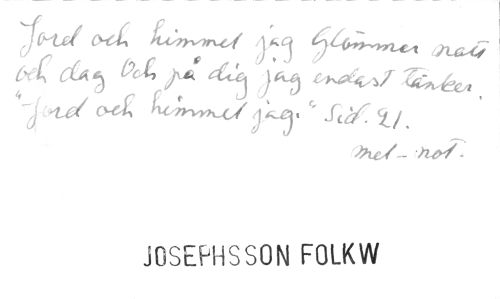 Jord och himmel jag Glömmer natt
och dag Och på dig jag endast tänker.
"Jord och himmel jag." Sid. 21.
mel-not.
JOSEPHSSON FOLKW